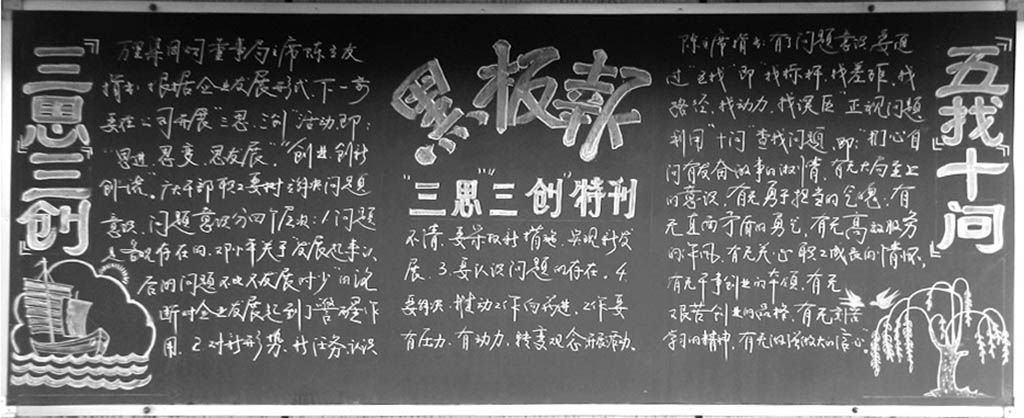 『三思』『三创』
万里集团问董事局主席陈立友
指出：根据企业发展形式，下一步
要在公司开展“三思、三创”活动，即：
“思进、思变、思发展”，“创业、创新
创流”。广大干部职工要树立解决问题
意识，问题意识分四个层次：1问题
是客观存在的，邓小平关于发展起来以
后的问题不比不发展时少的论
断对企业发展起到了警醒作
用。2.对新形势、新任务认识
黑板款
“三思”“三创”特刊
不清，要采取新措施，实现新发
展。3.要认识问题的存在。4.
要解决，推动工作向前进，工作要
有压力，有动力，转变观念，开展活动。
陈主席指出：有了问题意识，要通
过“五找”即“找标杆，找差距，找
路径，找动力，找误区”正视问题
利用“十问”查找问题，即：“扪心自
问有发奋故事的激情，有无大局至上
的意识，有无勇于担当的气魄，有
无直面矛盾的勇气，有无高效服务
的作风，有无关心职工成长的情怀，
有无干事创业的本领，有无
艰苦创业的品格，有无刻苦
学习的精神，有无做强做大的信心”。
『五找』『十问』